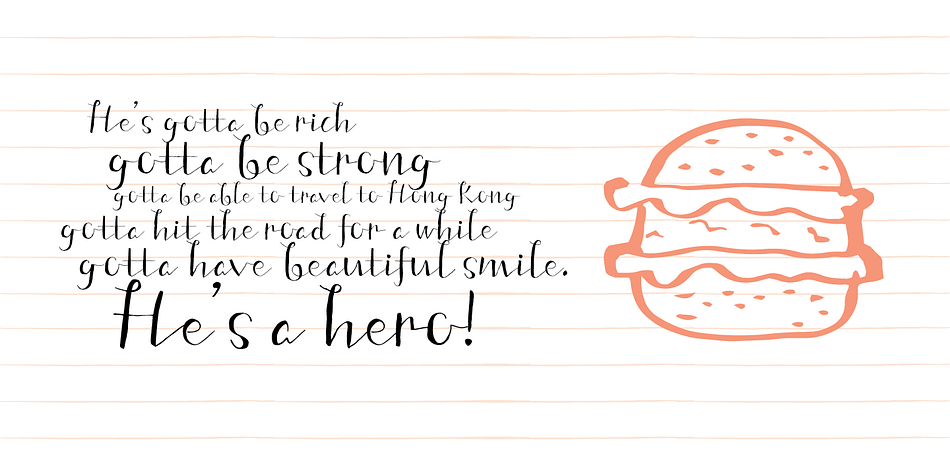 He's gotta be rich
gotta be strong
gotta be able to travel to Hong Kong
gotta hit the road for a while
gotta have beautiful smile.
He's a hero!